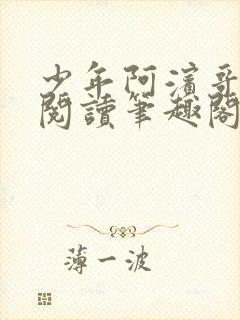 少年阿濱哥
閱讀筆趣閣
薄一波